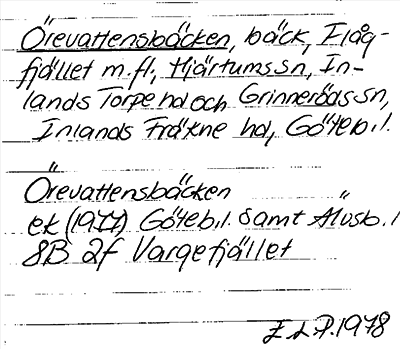 Örevattensbäcken, bäck, Flåg-
fjället m.fl., Hjärtums sn, In-
lands Torpe hd och Grinneröds sn,
Inlands Fräkne hd, Göteb. l.
Örevattensbäcken
ek (1977) Göteb. l. samt Älvsb. l
8B 2f Vargefjället
1978